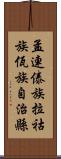 孟連傣族拉祜
族佤族自治縣